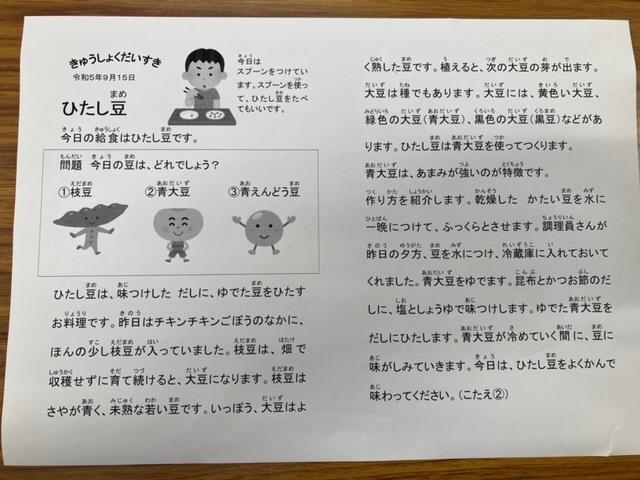 きゅうしょくだいすき
令和5年9月15日
ひたし豆
今日の給食はひたし豆です。
今日は
スプーンをつけてい
ます。スプーンを使っ
て、ひたし豆をたべ
てもいいです。
問題 今日の豆は、どれでしょう？
①枝豆 ②青大豆 ③青えんどう豆
ひたし豆は、味つけした だしに、ゆでた豆をひたす
お料理です。昨日はチキンチキンごぼうのなかに、
ほんの少し枝豆が入っていました。枝豆は、畑で
収穫せずに育て続けると、大豆になります。枝豆は
さやが青く、未熟な若い豆です。いっぽう、大豆はよ
く熟した豆です。植えると、次の大豆の芽が出ます。
大豆は種でもあります。大豆には、黄色い大豆、
緑色の大豆（青大豆）、黒色の大豆（黒豆）などがあ
ります。ひたし豆は青大豆を使ってつくります。
青大豆は、あまみが強いのが特徴です。
作り方を紹介します。乾燥した かたい豆を水に
一晩につけて、ふっくらとさせます。調理員さんが
昨日の夕方、豆を水につけ、冷蔵庫に入れておいて
くれました。青大豆をゆでます。昆布とかつお節のだ
しに、塩としょうゆで味つけします。ゆでた青大豆を
だしにひたします。青大豆が冷めていく間に、豆に
味がしみていきます。今日は、ひたし豆をよくかんで
味わってください。（こたえ②）